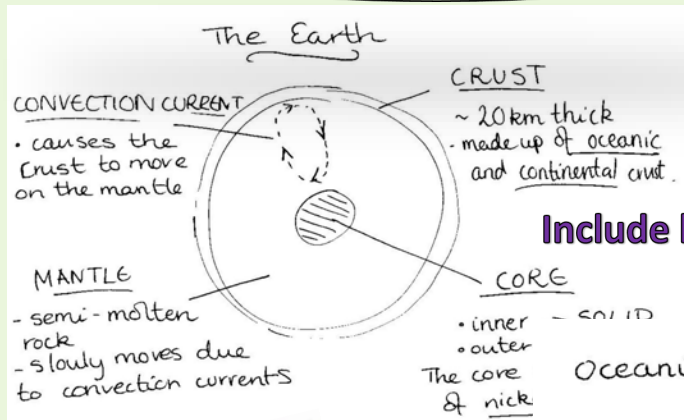 The Earth
CONVECTION CURRENT
• causes the
crust to move
on the mantle
CRUST
~ 20km thick
- made up of oceanic
and continental crust.
Include
MANTLE
- semi-molten
rock
- slowly moves due
to convection currents
CORE
• inner - SOLID
• outer
The core
of nick
Oceani